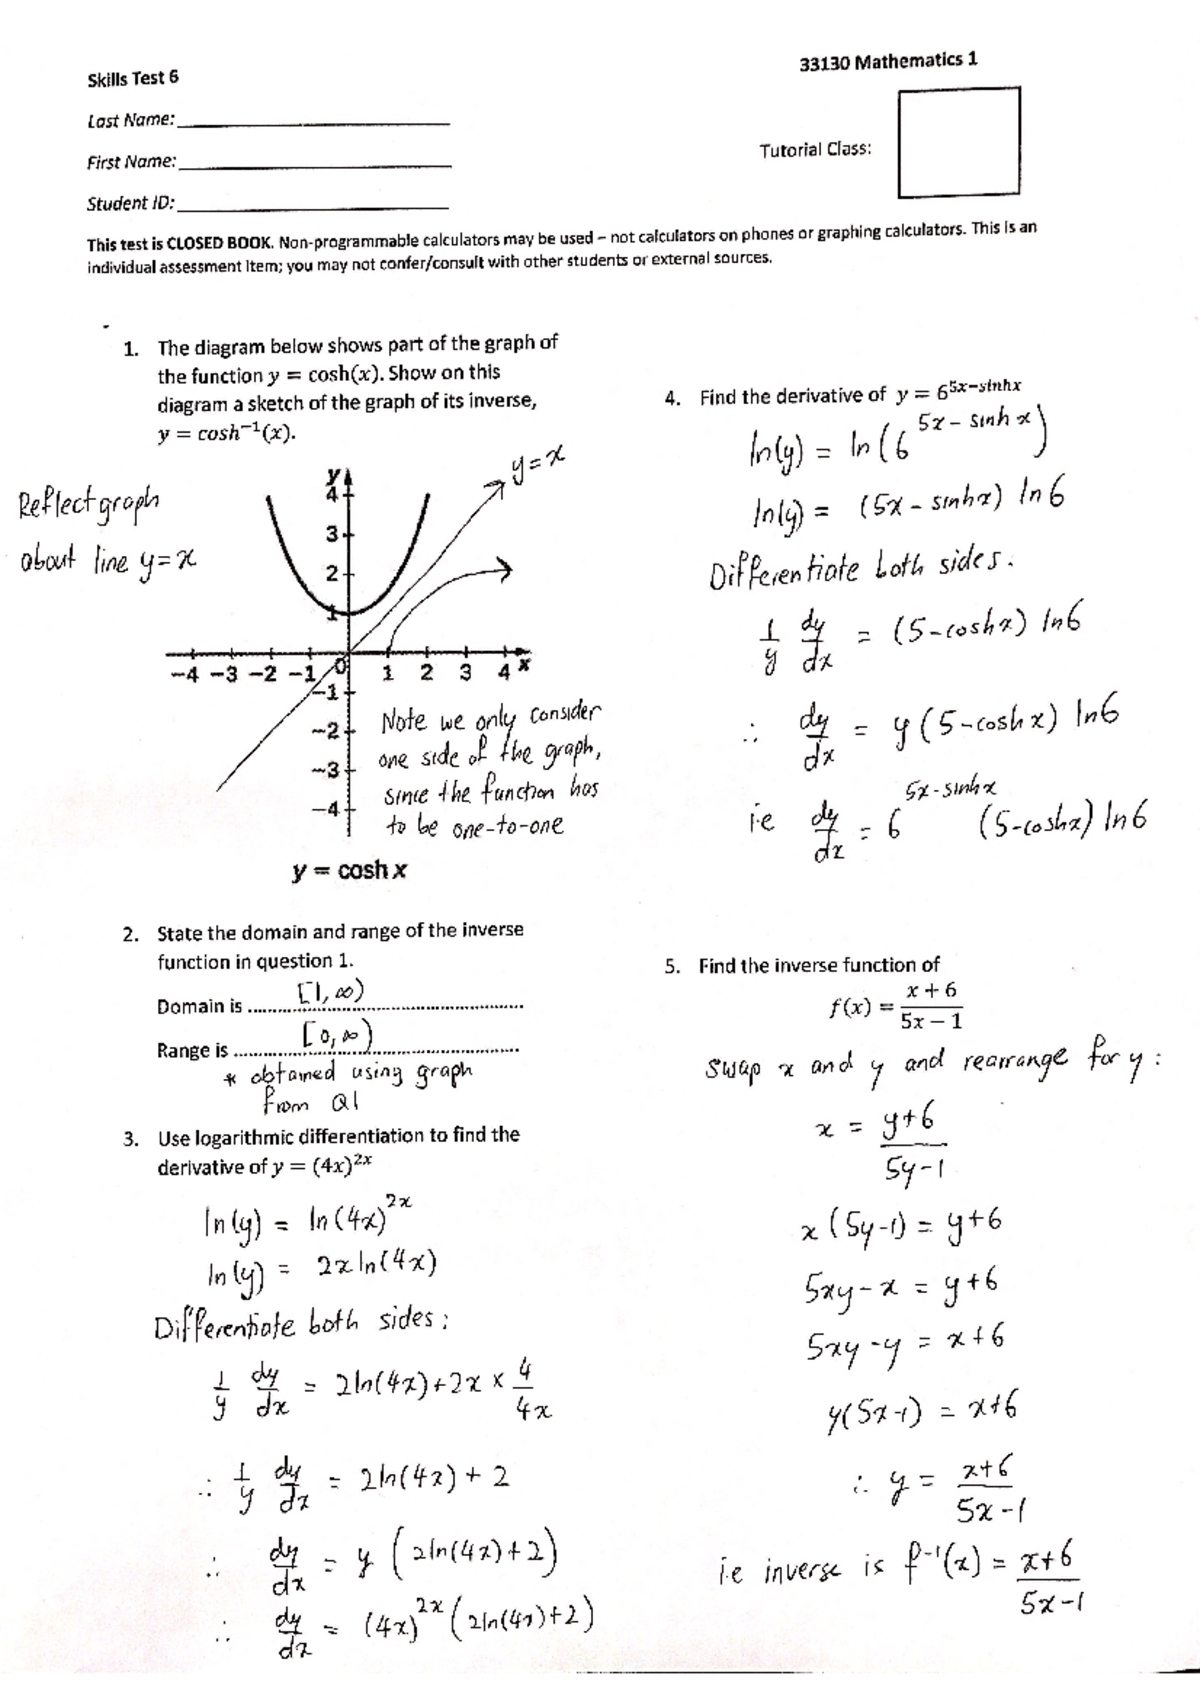 33130 Mathematics 1
Skills Test 6
Last Name:
First Name:
Student ID:
Tutorial Class:
This test is CLOSED BOOK. Non-programmable calculators may be used – not calculators on phones or graphing calculators. This is an
individual assessment item; you may not confer/consult with other students or external sources.
1. The diagram below shows part of the graph of
the function y = cosh(x). Show on this
diagram a sketch of the graph of its inverse,
y = cosh⁻¹(x).
Reflect graph
about line y=x
y=x
y
4
3
2
1
-4 -3 -2 -1 0 1 2 3 4 x
-1
-2
-3
-4
Note we only consider
one side of the graph,
since the function has
to be one-to-one
y = cosh x
2. State the domain and range of the inverse
function in question 1.
Domain is [1, ∞)
Range is [0, ∞)
* obtained using graph
from Q1
3. Use logarithmic differentiation to find the
derivative of y = (4x)^2x
ln(y) = ln(4x)^2x
ln(y) = 2x ln(4x)
Differentiate both sides:
1/y dy/dx = 2ln(4x)+2x × 4/4x
∴ 1/y dy/dx = 2ln(4x) + 2
∴ dy/dx = y (2ln(4x)+2)
∴ dy/dx = (4x)^2x (2ln(4x)+2)
4. Find the derivative of y = 6^5x−sinhx
ln(y) = ln(6^5x - sinh x)
ln(y) = (5x - sinhx) ln6
Differentiate both sides.
1/y dy/dx = (5-coshx) ln6
∴ dy/dx = y(5-coshx) ln6
i.e dy/dx = 6^5x-sinhx (5-coshx) ln6
5. Find the inverse function of
f(x) = x + 6 / 5x − 1
Swap x and y and rearrange for y:
x = y+6 / 5y-1
x(5y-1) = y+6
5xy-x = y+6
5xy-y = x+6
y(5x-1) = x+6
∴ y = x+6 / 5x-1
i.e inverse is f⁻¹(x) = x+6 / 5x-1